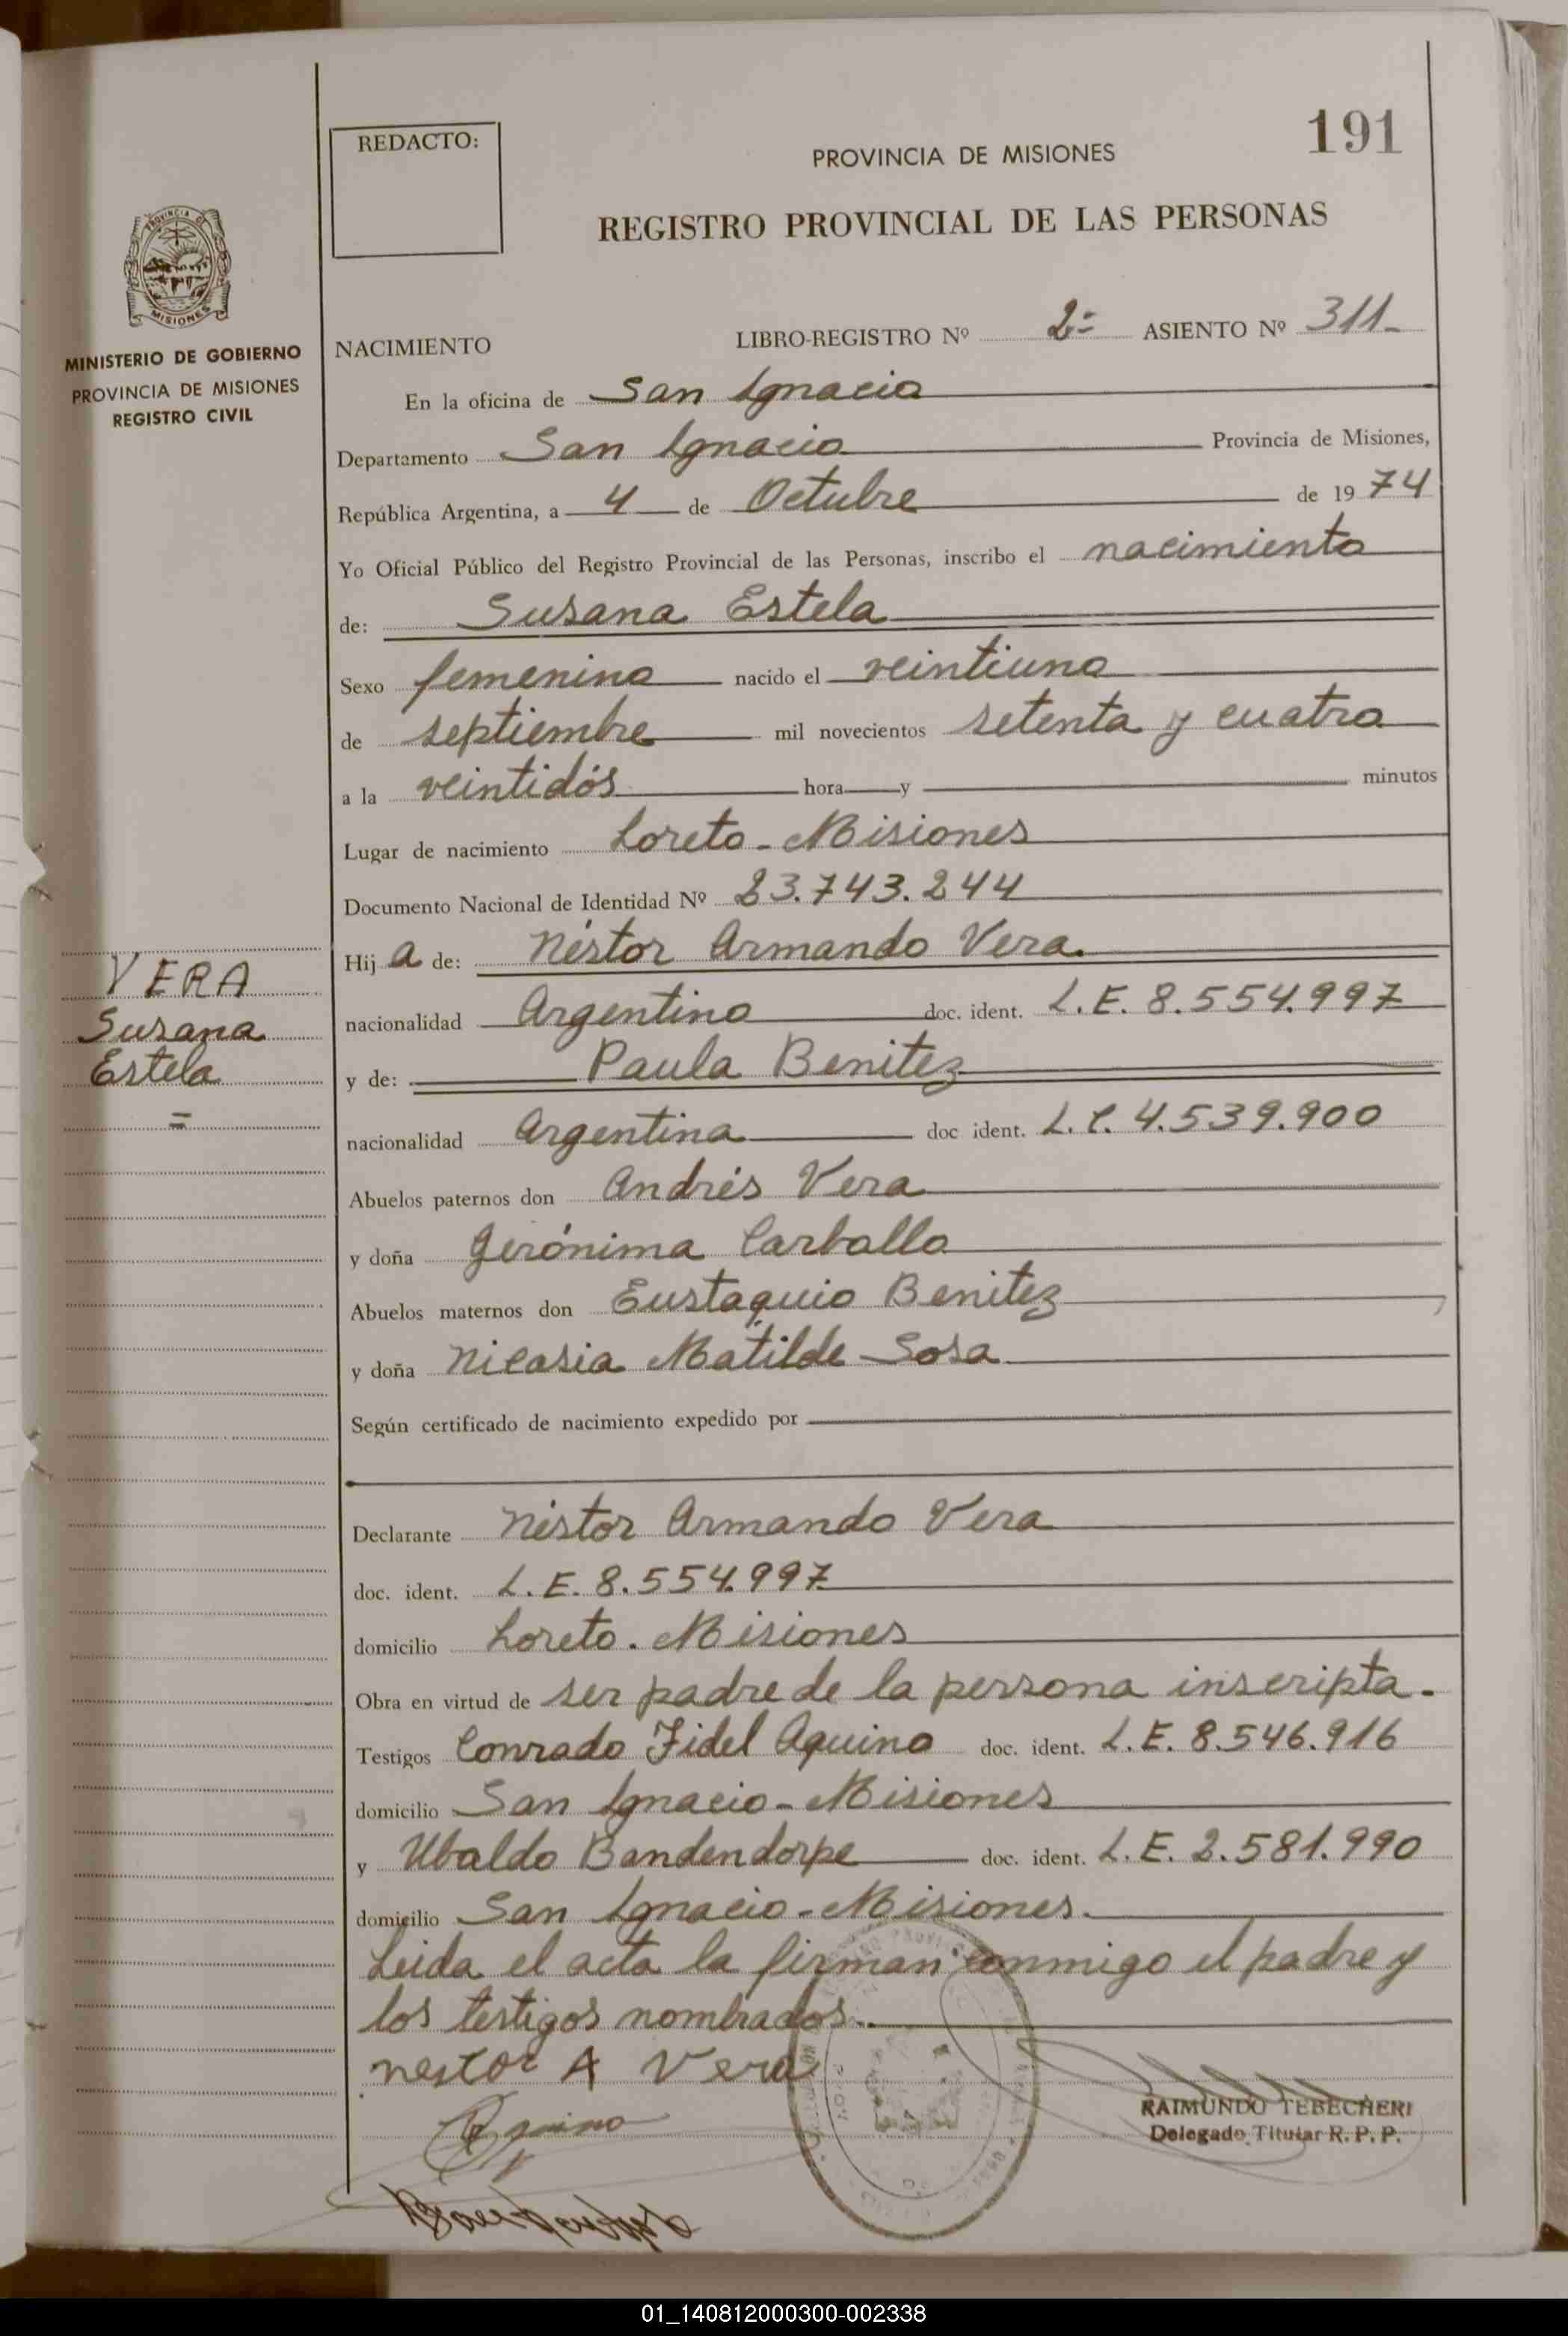 191
REDACTO:
PROVINCIA DE MISIONES
REGISTRO PROVINCIAL DE LAS PERSONAS
PROVINCIA DE
MISIONES
MINISTERIO DE GOBIERNO
PROVINCIA DE MISIONES
REGISTRO CIVIL
NACIMIENTO LIBRO-REGISTRO Nº 2= ASIENTO Nº 311-
En la oficina de San Ignacio
Departamento San Ignacio Provincia de Misiones,
República Argentina, a 4 de Octubre de 1974
Yo Oficial Público del Registro Provincial de las Personas, inscribo el nacimiento
de: Susana Estela
Sexo femenino nacido el veintiuno
de septiembre mil novecientos setenta y cuatro
a la veintidós hora y minutos
Lugar de nacimiento Loreto - Misiones
Documento Nacional de Identidad Nº 23.743.244
VERA
Susana
Estela
=
Hija de: Néstor Armando Vera.
nacionalidad Argentino doc. ident. L.E. 8.554.997
y de: Paula Benitez
nacionalidad Argentina doc ident. L.C. 4.539.900
Abuelos paternos don Andrés Vera
y doña Gerónima Carballo
Abuelos maternos don Eustaquio Benitez
y doña Nicasia Matilde Sosa
Según certificado de nacimiento expedido por
Declarante Néstor Armando Vera
doc. ident. L.E. 8.554.997
domicilio Loreto. Misiones
Obra en virtud de ser padre de la persona inscripta.
Testigos Conrado Fidel Aquino doc. ident. L.E. 8.546.916
domicilio San Ignacio - Misiones
y Ubaldo Bandendorpe doc. ident. L.E. 2.581.990
domicilio San Ignacio - Misiones.
Leida el acta la firman conmigo el padre y
los testigos nombrados.
nestor A Vera
Aquino
RAIMUNDO TEBECHERI
Delegado Titular R. P. P.
01_140812000300-002338